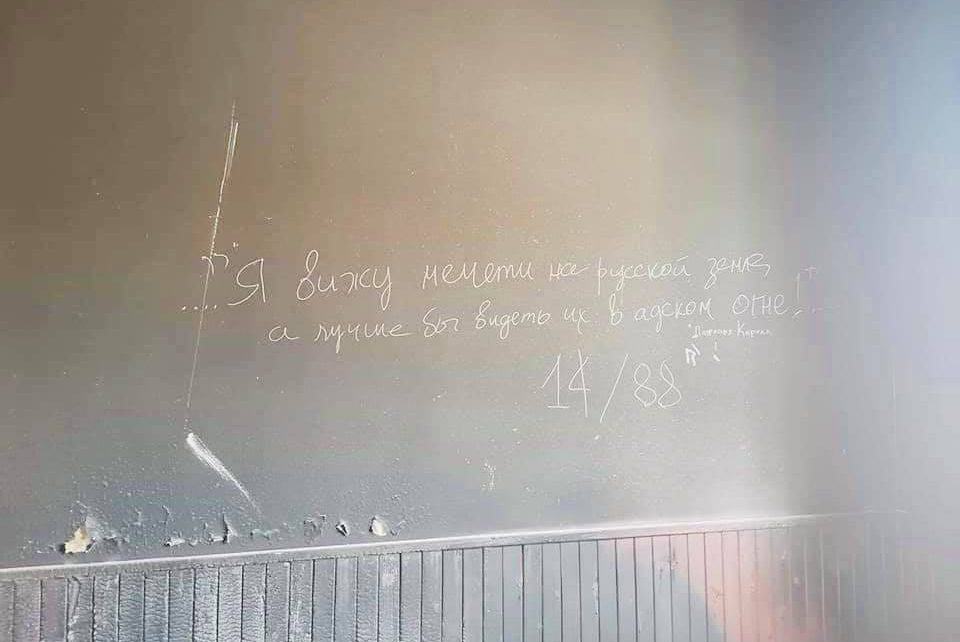 ...."Я вижу мечети на русской земле,
а лучше бы видеть их в адском огне!..
14/88